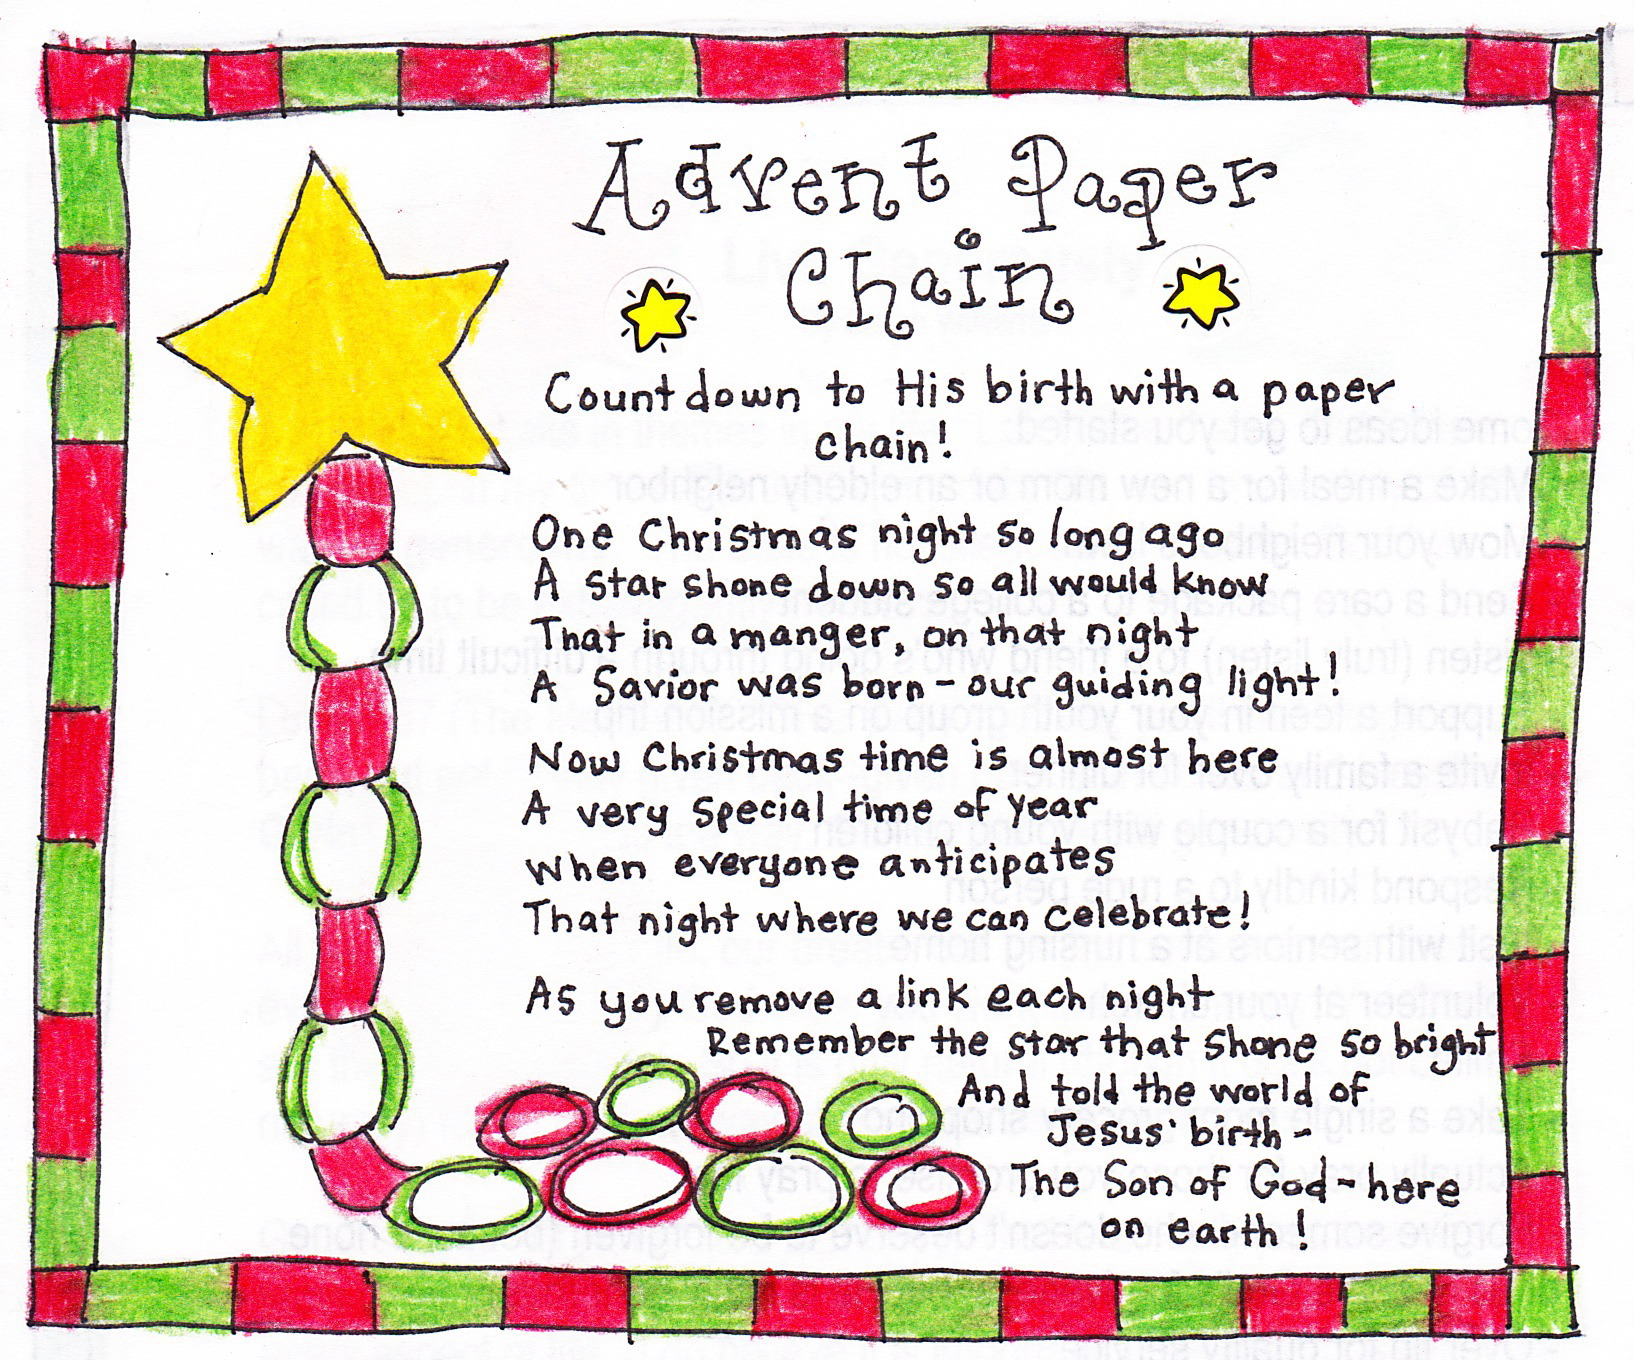 Advent Paper
Chain
Countdown to His birth with a paper
chain!
One Christmas night so long ago
A star shone down so all would know
That in a manger, on that night
A Savior was born - our guiding light!
Now Christmas time is almost here
A very special time of year
When everyone anticipates
That night where we can celebrate!
As you remove a link each night
Remember the star that shone so bright
And told the world of
Jesus' birth -
The Son of God - here
on earth!